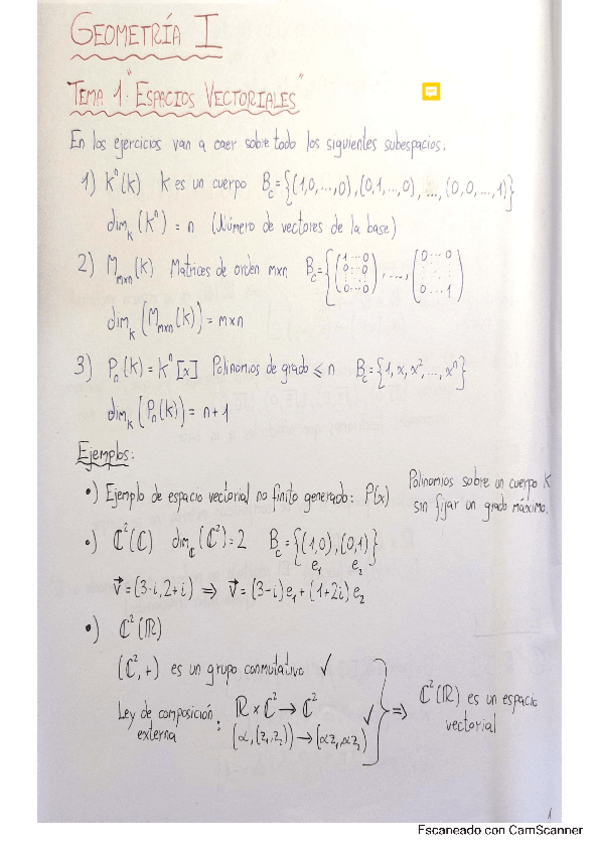 GEOMETRÍA I
TEMA 1. "ESPACIOS VECTORIALES"
En los ejercicios van a caer sobre todo los siguientes subespacios:
1) Kⁿ(K) K es un cuerpo B_c = {(1,0,...,0),(0,1,...,0), ..., (0,0,...,1)}
dim_K (Kⁿ) = n (Número de vectores de la base)
2) M_mxn(K) Matrices de orden mxn B_c = {(1 ... 0 / 0 ... 0 / 0 ... 0), ..., (0 ... 0 / 0 ... 1)}
dim_K (M_mxn(K)) = mxn
3) P_n(K) = Kⁿ[x] Polinomios de grado ≤ n B_c = {1, x, x², ..., xⁿ}
dim_K (P_n(K)) = n+1
Ejemplos:
•) Ejemplo de espacio vectorial no finito generado: P(x) Polinomios sobre un cuerpo K
sin fijar un grado máximo.
•) ℂ²(ℂ) dim_ℂ (ℂ²) = 2 B_c = {(1,0),(0,1)}
e₁ e₂
v⃗ = (3-i, 2+i) ⇒ v⃗ = (3-i)e₁ + (1+2i)e₂
•) ℂ²(ℝ)
(ℂ²,+) es un grupo conmutativo ✓
Ley de composición externa : ℝ x ℂ² → ℂ² ✓
(α,(z₁,z₂)) → (αz₁,αz₂)
⇒ ℂ²(ℝ) es un espacio
vectorial
1
Escaneado con CamScanner